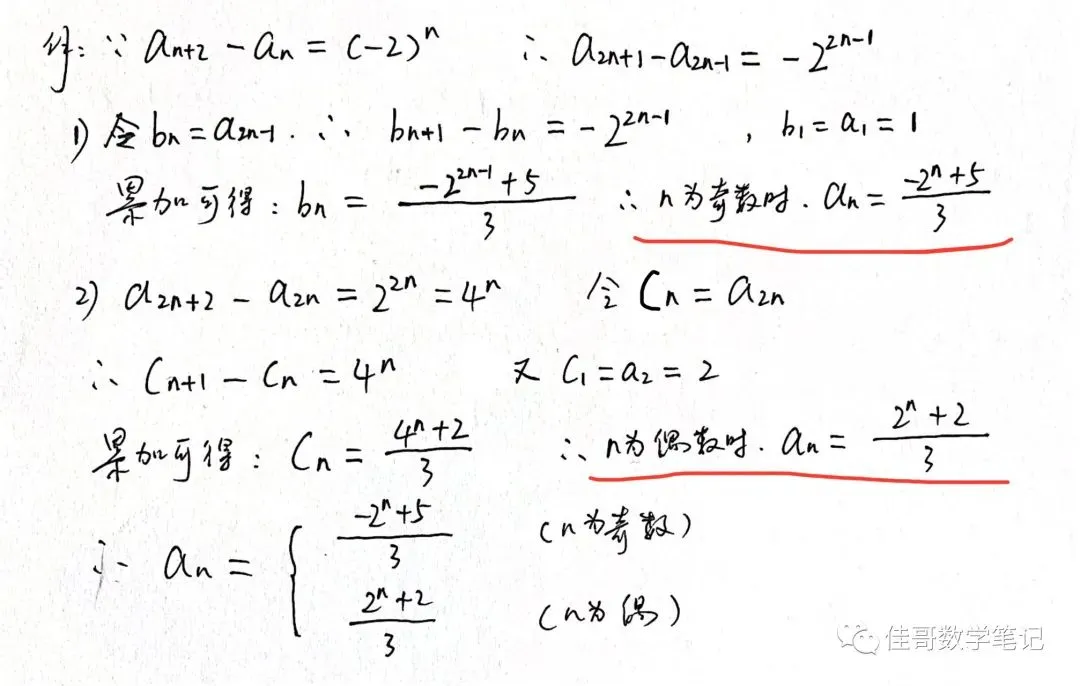 解: ∵ aₙ₊₂ - aₙ = (-2)ⁿ ∴ a₂ₙ₊₁ - a₂ₙ₋₁ = -2²ⁿ⁻¹
1) 令 bₙ = a₂ₙ₋₁. ∴ bₙ₊₁ - bₙ = -2²ⁿ⁻¹ , b₁ = a₁ = 1
累加可得: bₙ = (-2²ⁿ⁻¹ + 5)/3 ∴ n为奇数时. aₙ = (-2ⁿ + 5)/3
2) a₂ₙ₊₂ - a₂ₙ = 2²ⁿ = 4ⁿ 令 Cₙ = a₂ₙ
∴ Cₙ₊₁ - Cₙ = 4ⁿ 又 C₁ = a₂ = 2
累加可得: Cₙ = (4ⁿ + 2)/3 ∴ n为偶数时. aₙ = (2ⁿ + 2)/3
∴ aₙ = { (-2ⁿ + 5)/3 (n为奇数)
(2ⁿ + 2)/3 (n为偶)
佳哥数学笔记